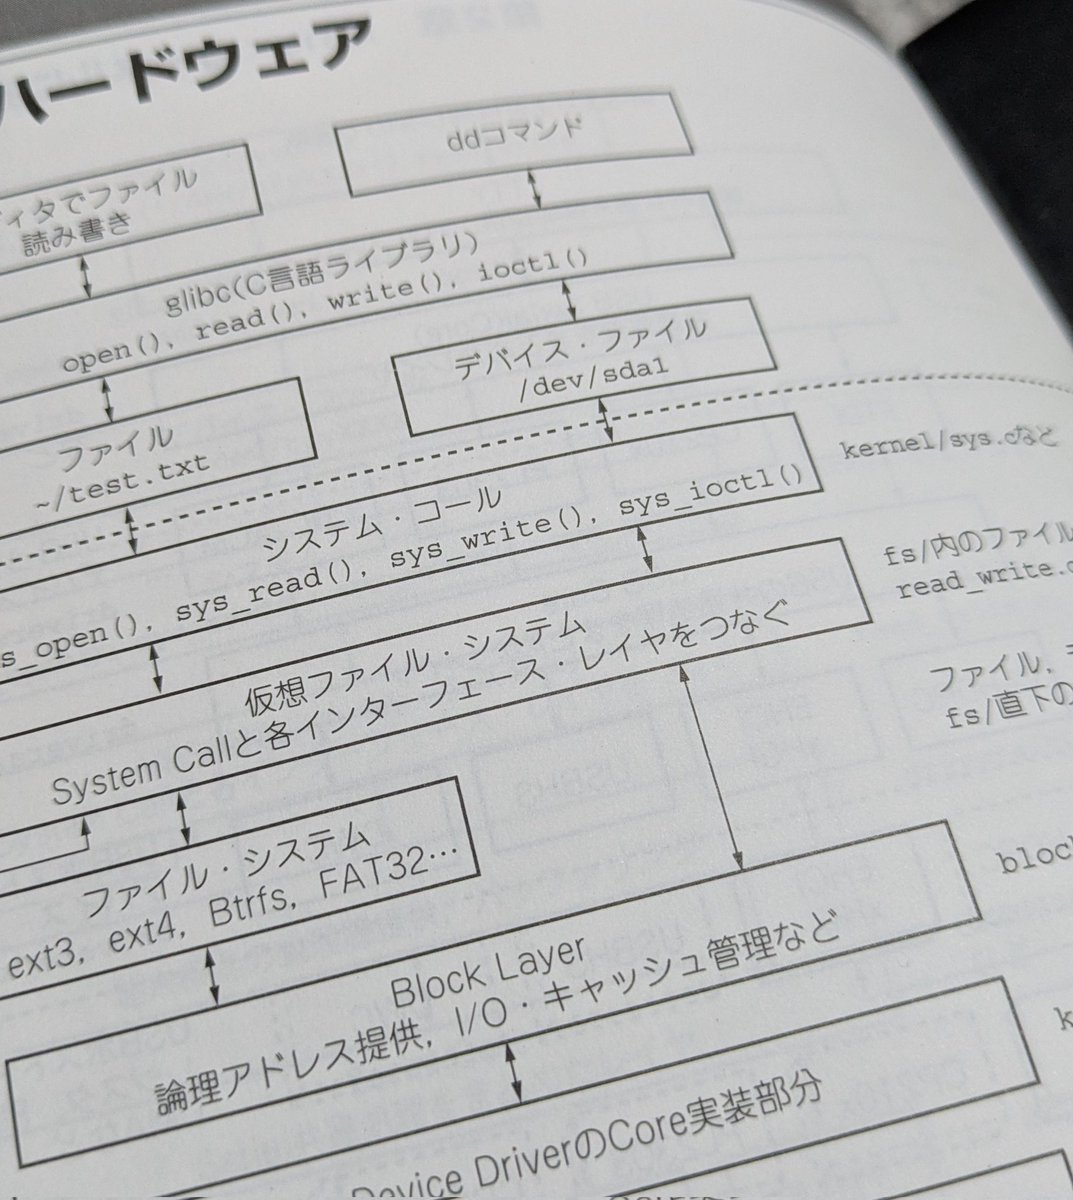 ハードウェア
ddコマンド
ィタでファイル
読み書き
glibc(C言語ライブラリ)
open(), read(), write(), ioctl()
デバイス・ファイル
/dev/sda1
ファイル
~/test.txt
システム・コール
s_open(), sys_read(), sys_write(), sys_ioctl()
kernel/sys.cなど
仮想ファイル・システム
System Callと各インターフェース・レイヤをつなぐ
fs/内のファイル
read_write.c
ファイル,
fs/直下の
ファイル・システム
ext3, ext4, Btrfs, FAT32…
Block Layer
論理アドレス提供, I/O・キャッシュ管理など
bloc
k
Device DriverのCore実装部分